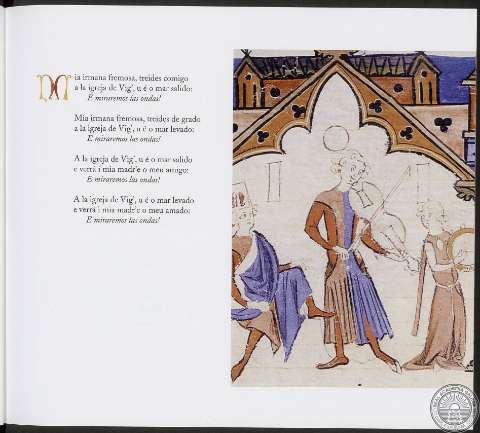 Mia irmana fremosa, treides comigo
a la igreja de Vig', u é o mar salido:
E miraremos las ondas!
Mia irmana fremosa, treides de grado
a la igreja de Vig', u é o mar levado:
E miraremos las ondas!
A la igreja de Vig', u é o mar salido
e verrá i mia madr'e o meu amigo:
E miraremos las ondas!
A la igreja de Vig', u é o mar levado
e verrá i mia madr'e o meu amado:
E miraremos las ondas!